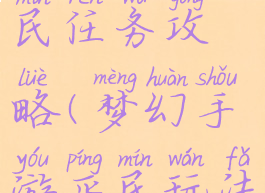 mín rèn wù gōng
民任务攻
lüè mèng huàn shǒu
略(梦幻手
yóu píng mín wán fǎ
游平民玩法